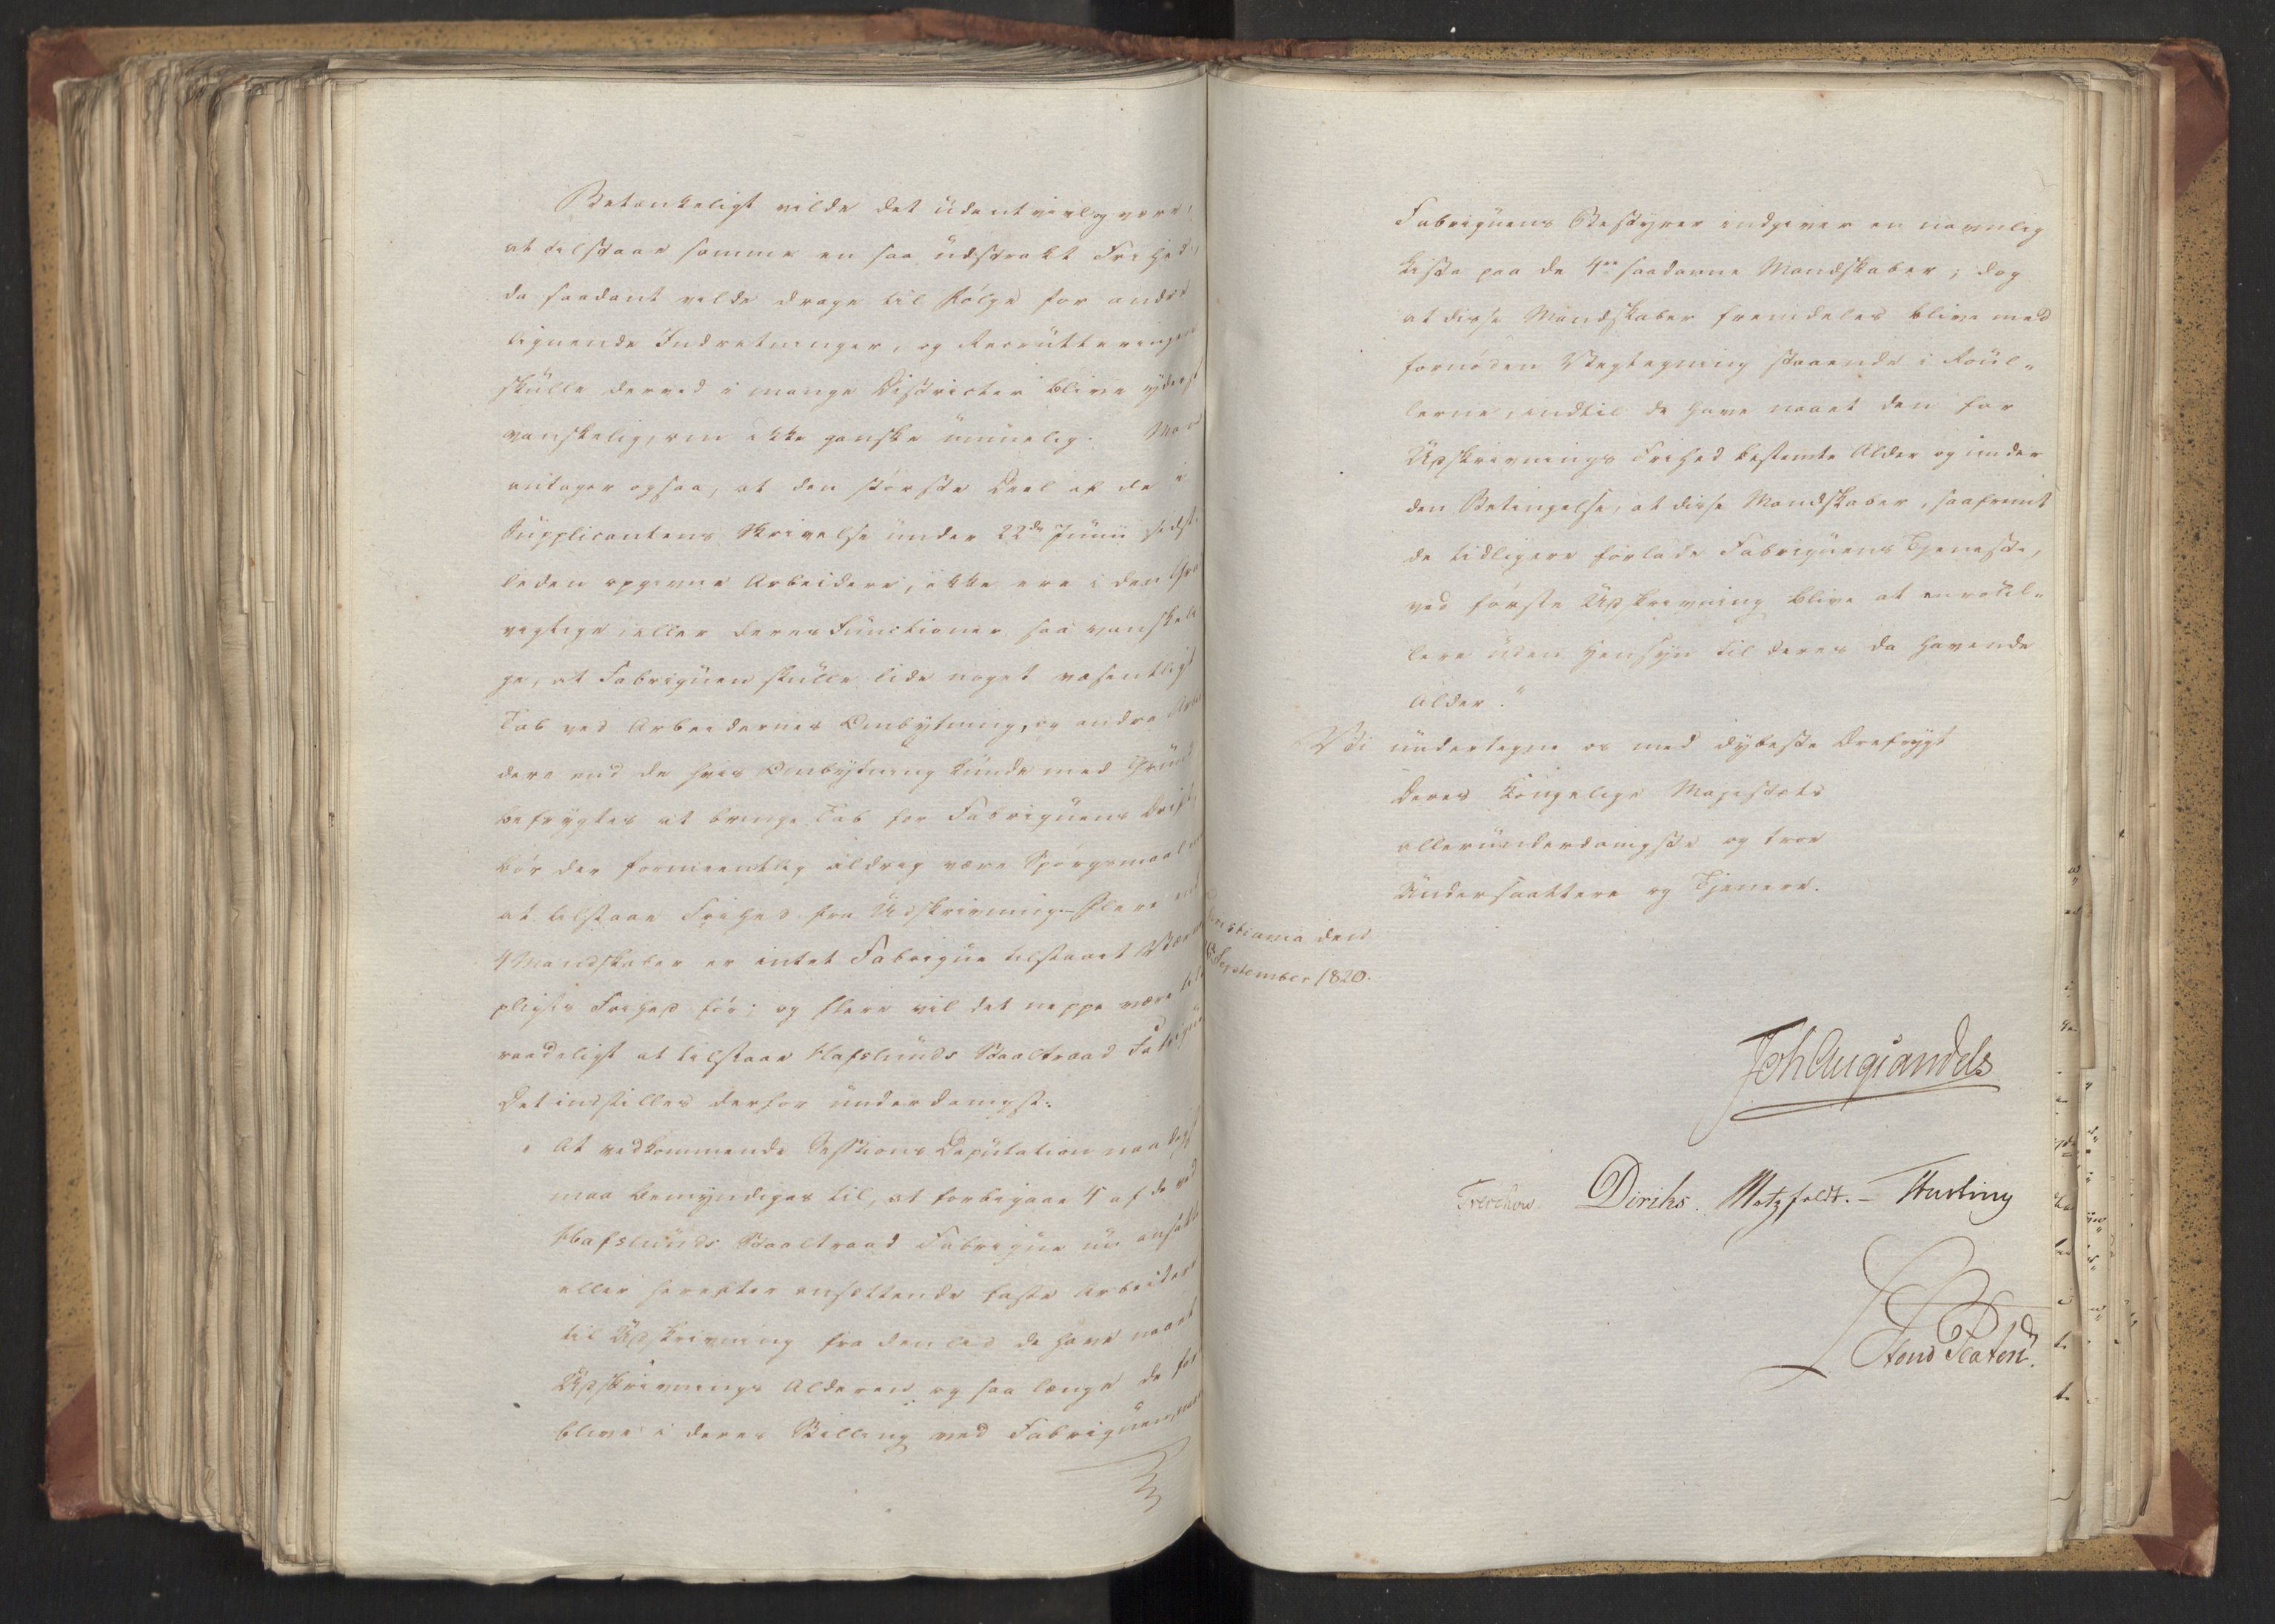 Betænkeligt vilde det udentvivl og være,
at tilstaae samme en saa udstrakt Frihed,
da saadant vilde drage til Følge for andre
lignende Indretninger, og Recrutteringen
skulle derved i mange Districter blive yderst
vanskelig, om ikke ganske umuelig. Man
antager ogsaa, at den største Deel af de i
Supplicantens Skrivelse under 22de Junii sidst
leden opgivne Arbeidere, ikke ere i den
vigtige, eller deres Functioner saa vanskeli
ge, at Fabriquen skulle lide noget væsentligt
Tab ved Arbeidernes Ombytning, og andre Arbei
dere end de hvis Ombytning kunde med Grund
befrygtes at bringe Tab for Fabriquens Drift,
bør der formeentlig aldrig være Spørgsmaal om
at tilstaae Frihed fra Udskrivning. Flere end
4 Mandskaber er intet Fabrique tilstaaet Værne
pligts Frihed for; og flere vil det neppe være til
raadeligt at tilstaae Hafslunds Staaltraad Fabrique
Det indstilles derfor underdanigst:
"At vedkommende Sessions Deputation naadigst
maa bemyndiges til, at forbigaae 4 af de ved
Hafslunds Staaltraad Fabrique nu ansatte
eller herefter ansættende faste Arbeidere
til Udskrivning fra den Tid de have naaet
Udskrivnings Alderen og saa længe de for
blive i deres Stilling ved Fabriquen, naar
Fabriquens Bestyrer indgiver en navnlig
Liste paa de 4re saadanne Mandskaber; dog
at disse Mandskaber fremdeles blive med
fornøden Vegtegning staaende i Roul-
lerne, indtil de have naaet den for
Udskrivnings Frihed bestemte Alder og under
den Betingelse, at disse Mandskaber, saafremt
de tidligere forlade Fabriquens Tjeneste,
ved første Udskrivning blive at enroul-
lere uden Hensyn til deres da havende
Alder."
Vi undertegne os med dybeste Ærefrygt
Deres Kongelige Majestæts
allerunderdanigste og troe
Undersaattere og Tjenere.
Christiania den
September 1820.
Joh Aug Sandels
Treschow Diriks. Motzfeldt. - Hartvig